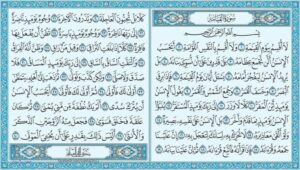 سورة القيامة
بسم الله الرحمن الرحيم
لا أقسم بيوم القيامة ولا أقسم بالنفس اللوامة أيحسب
الإنسان ألن نجمع عظامه بلى قادرين على أن نسوي بنانه
بل يريد الإنسان ليفجر أمامه يسأل أيان يوم القيامة فإذا برق
البصر وخسف القمر وجمع الشمس والقمر يقول
الإنسان يومئذ أين المفر كلا لا وزر إلى ربك يومئذ المستقر
ينبأ الإنسان يومئذ بما قدم وأخر بل الإنسان على نفسه
بصيرة ولو ألقى معاذيره لا تحرك به لسانك لتعجل به إن علينا
جمعه وقرآنه فإذا قرأناه فاتبع قرآنه ثم إن علينا بيانه
كلا بل تحبون العاجلة وتذرون الآخرة وجوه يومئذ ناضرة
إلى ربها ناظرة ووجوه يومئذ باسرة تظن أن يفعل بها
فاقرة كلا إذا بلغت التراقي وقيل من راق وظن أنه
الفراق والتفت الساق بالساق إلى ربك يومئذ المساق فلا
صدق ولا صلى ولكن كذب وتولى ثم ذهب إلى أهله
يتمطى أولى لك فأولى ثم أولى لك فأولى أيحسب الإنسان
أن يترك سدى ألم يك نطفة من مني يمنى ثم كان
علقة فخلق فسوى فجعل منه الزوجين الذكر
والأنثى أليس ذلك بقادر على أن يحيي الموتى